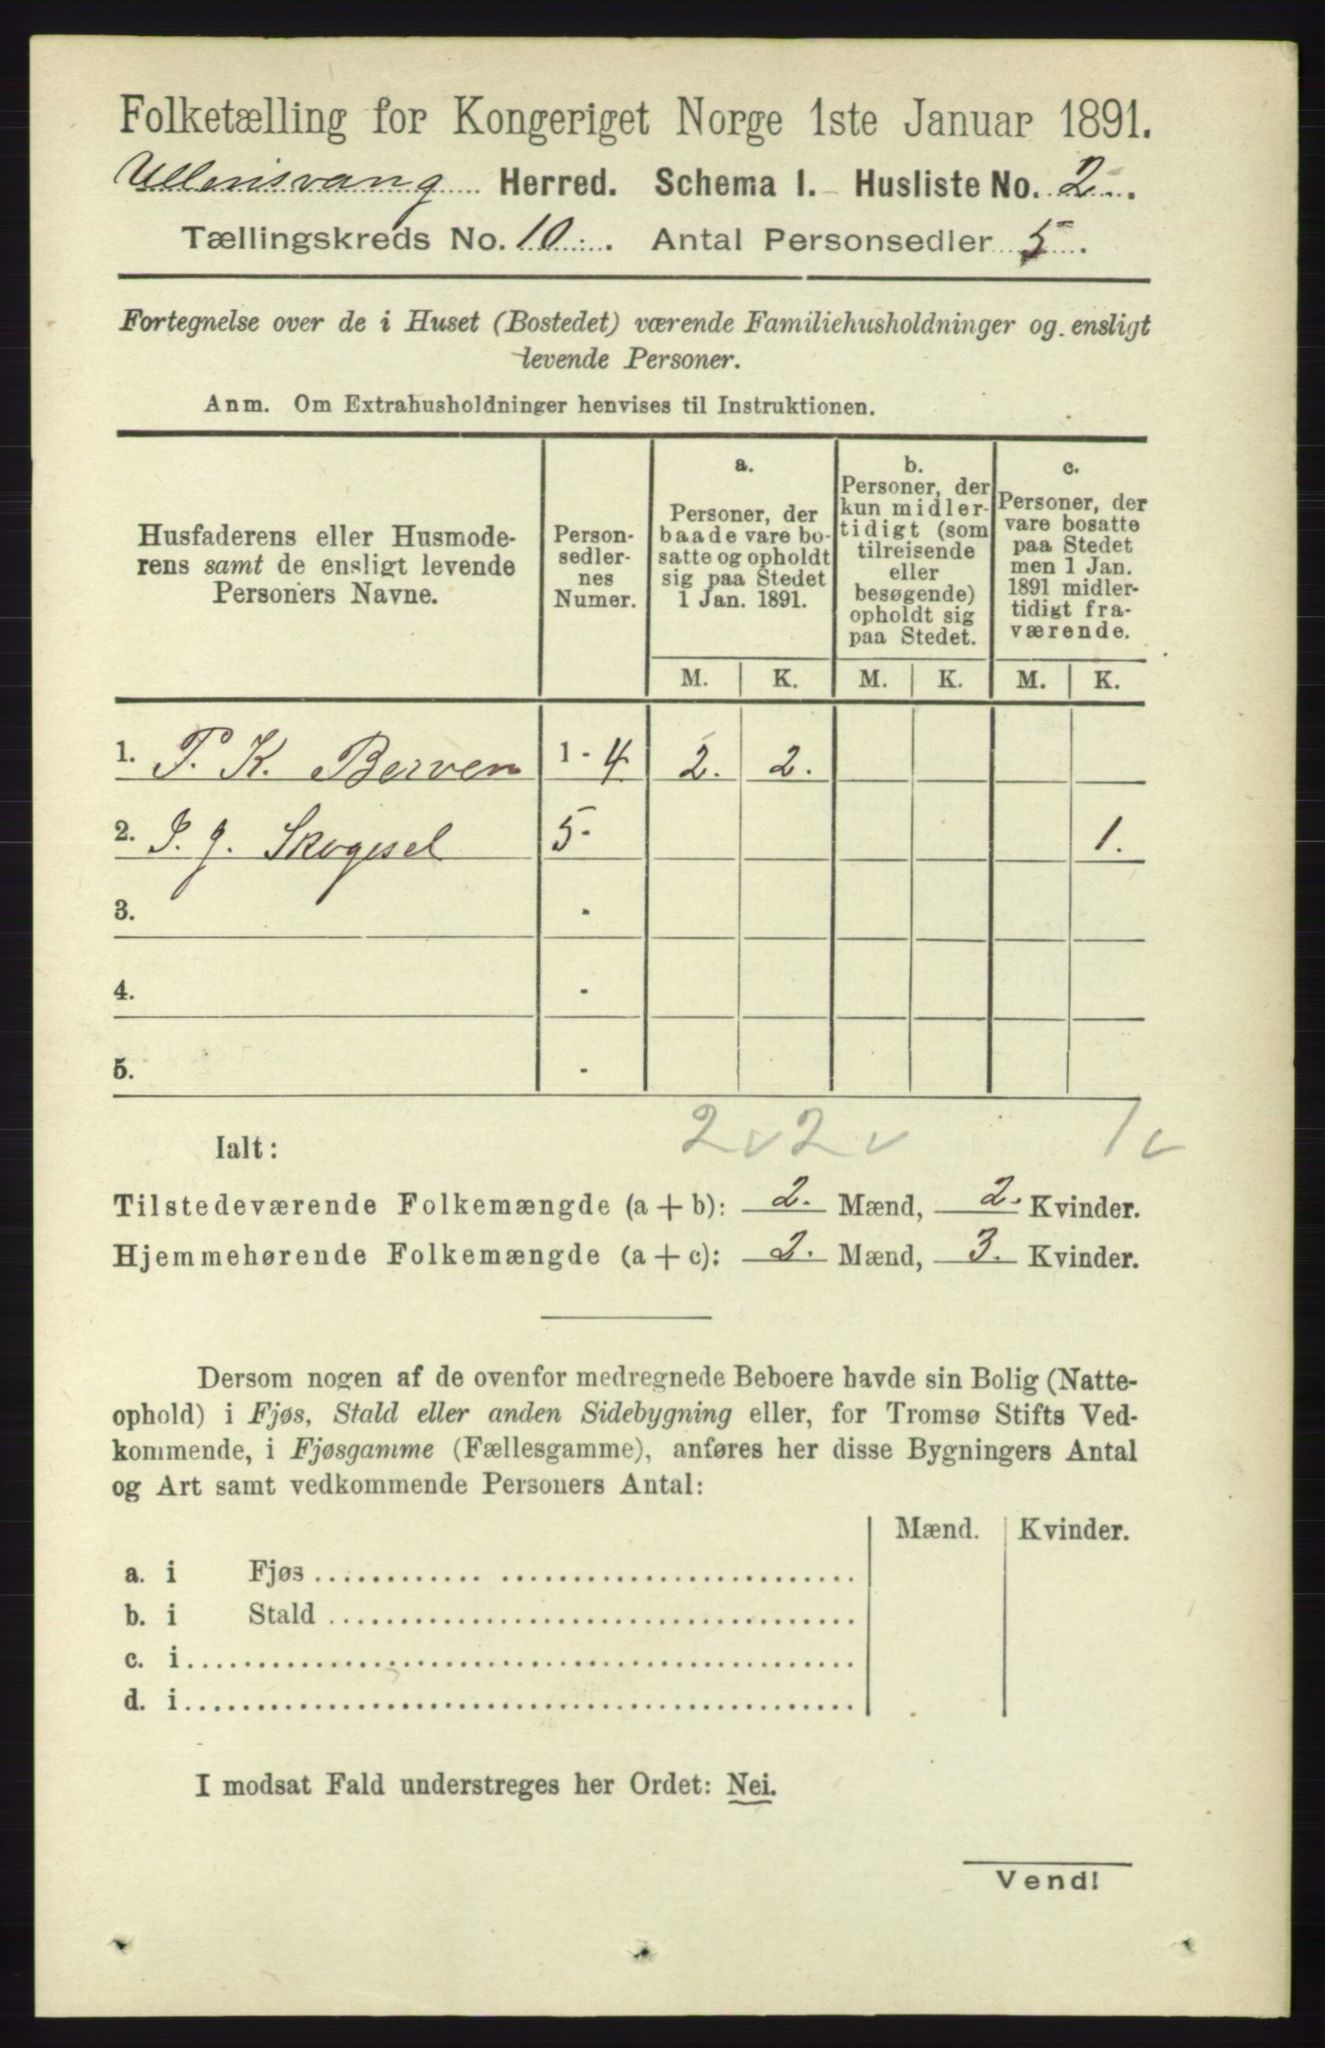 Folketælling for Kongeriget Norge 1ste Januar 1891.
Ullensvang Herred. Schema I. Husliste No. 2.
Tællingskreds No. 10. Antal Personsedler 5.
Fortegnelse over de i Huset (Bostedet) værende Familiehusholdninger og ensligt
levende Personer.
Anm. Om Extrahusholdninger henvises til Instruktionen.
Husfaderens eller Husmode-
rens samt de ensligt levende
Personers Navne.
Person-
sedler-
nes
Numer.
a.
Personer, der
baade vare bo-
satte og opholdt
sig paa Stedet
1 Jan. 1891.
b.
Personer, der
kun midler-
tidigt (som
tilreisende
eller
besøgende)
opholdt sig
paa Stedet.
c.
Personer, der
vare bosatte
paa Stedet
men 1 Jan.
1891 midler-
tidigt fra-
værende.
M. K. M. K. M. K.
1. P. K. Berven 1 - 4 2. 2.
2. I. J. Skogesel 5 - 1.
3. -
4. -
5. -
Ialt: 2 2 1
Tilstedeværende Folkemængde (a + b): 2. Mænd, 2. Kvinder.
Hjemmehørende Folkemængde (a + c): 2. Mænd, 3. Kvinder.
Dersom nogen af de ovenfor medregnede Beboere havde sin Bolig (Natte-
ophold) i Fjøs, Stald eller anden Sidebygning eller, for Tromsø Stifts Ved-
kommende, i Fjøsgamme (Fællesgamme), anføres her disse Bygningers Antal
og Art samt vedkommende Personers Antal:
Mænd. Kvinder.
a. i Fjøs
b. i Stald
c. i
d. i
I modsat Fald understreges her Ordet: Nei.
Vend!